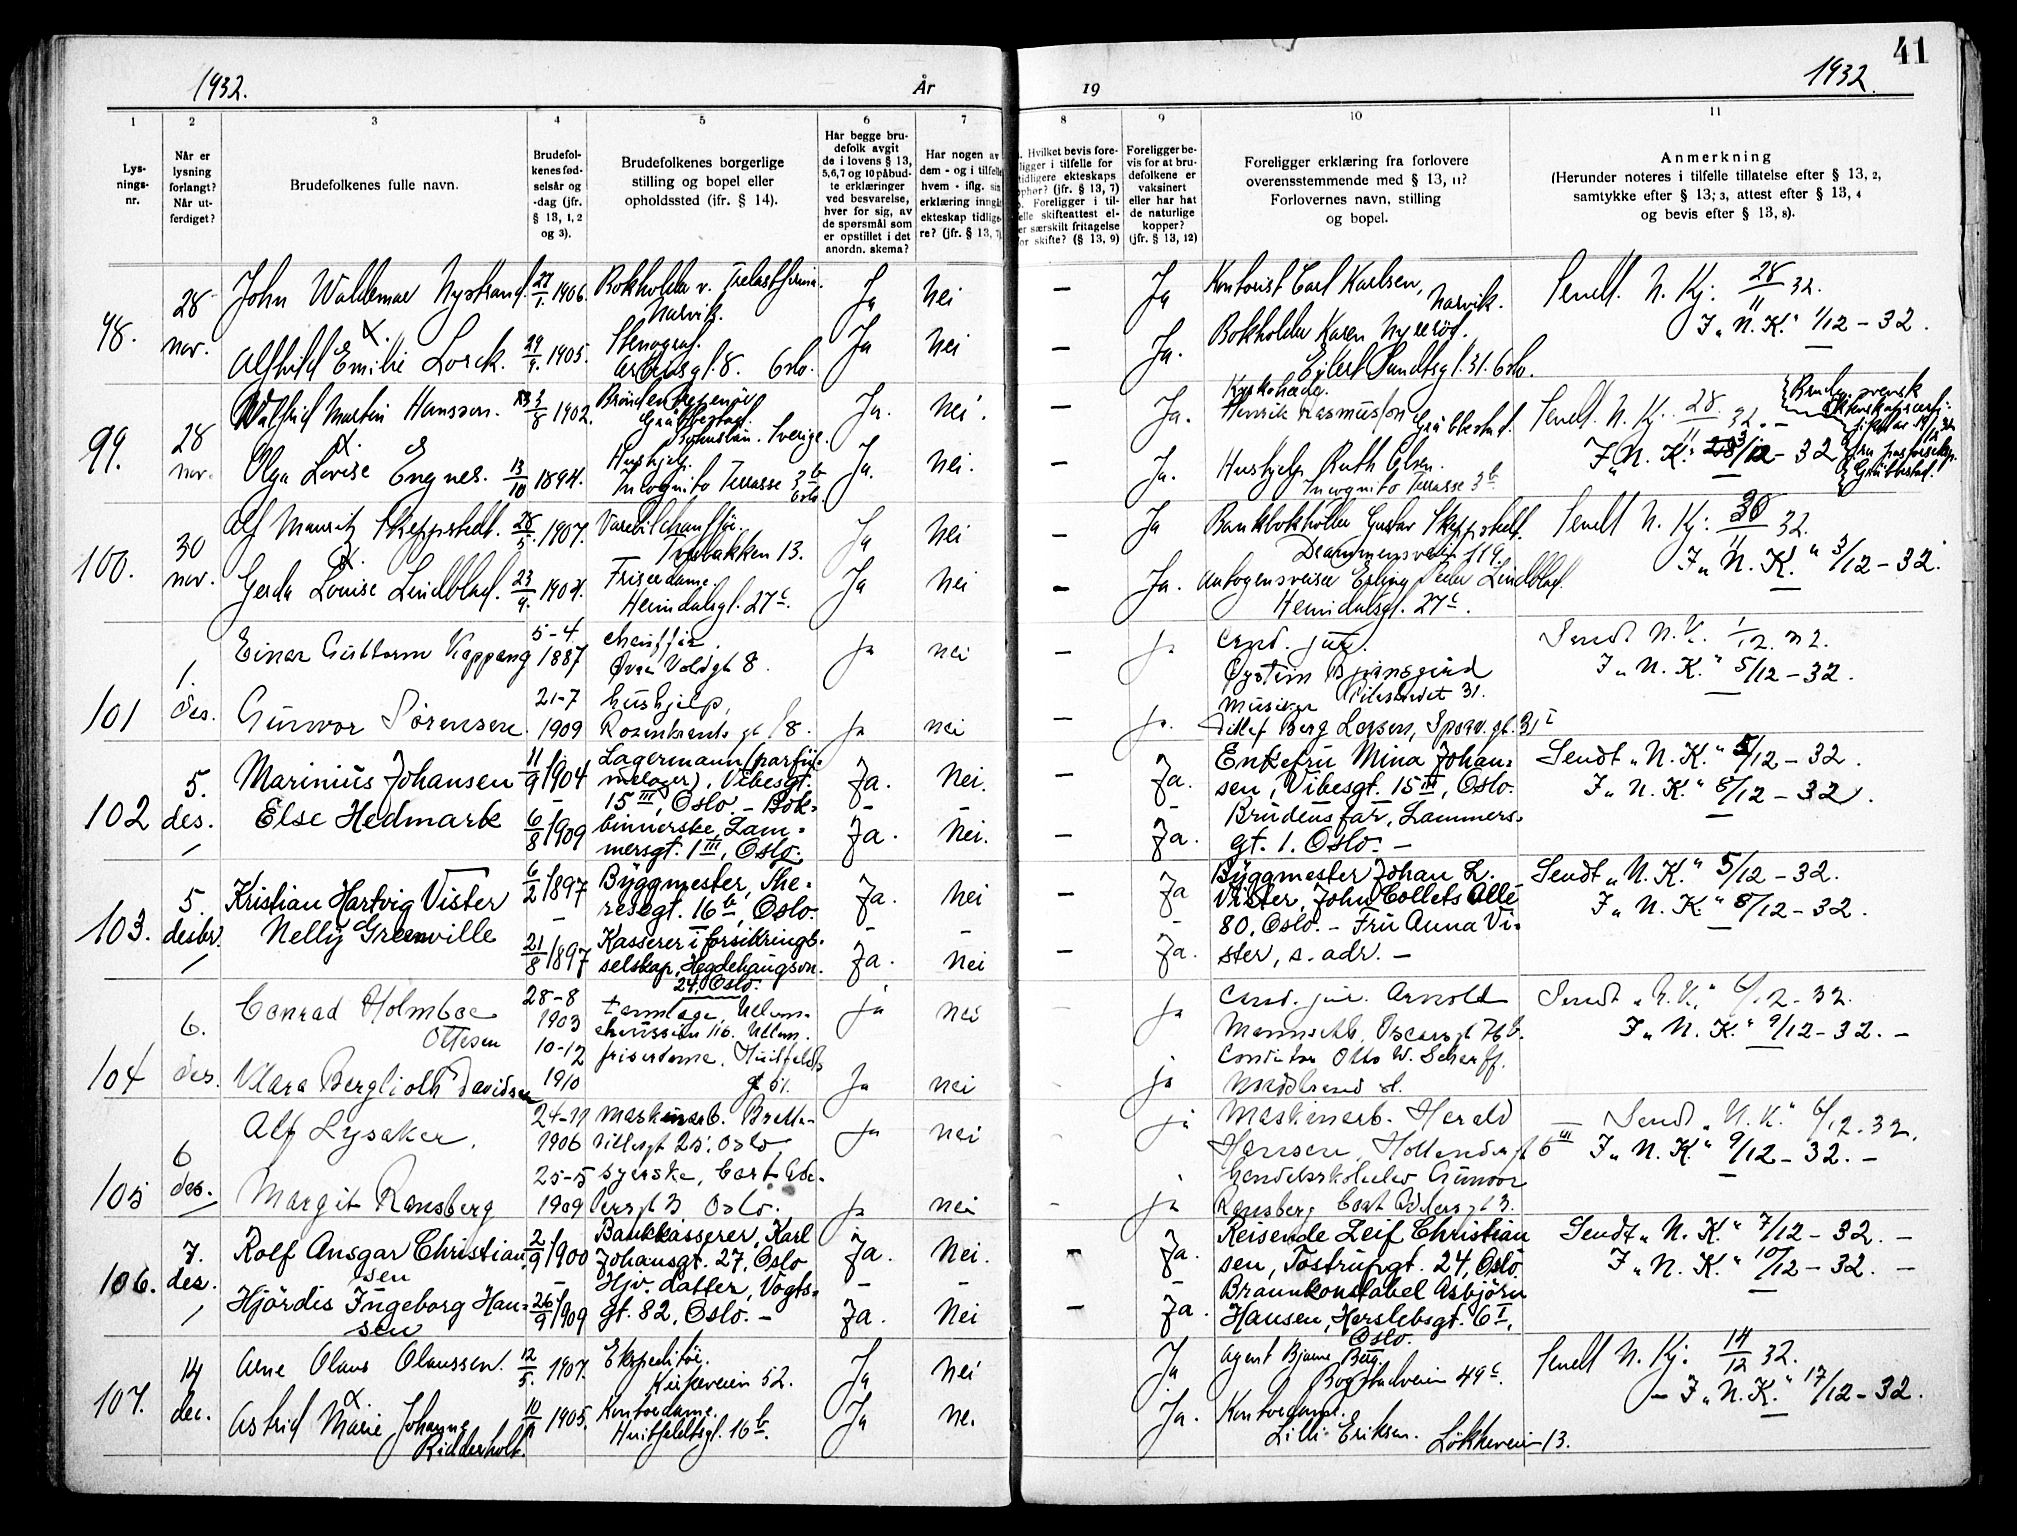 41
1932.
År
19
1932.
1
2
3
4
5
6
7
8
9
10
11
Lys-
nings-
nr.
Når er
lysning
forlangt?
Når ut-
ferdiget?
Brudefolkenes fulle navn.
Brudefol-
kenes fød-
selsår og
-dag (jfr.
§ 13, 1, 2
og 3).
Brudefolkenes borgerlige
stilling og bopel eller
opholdssted (jfr. § 14).
Har begge bru-
defolk avgit
de i lovens § 13,
5,6,7 og 10 påbud-
te erklæringer
ved besvarelse,
hver for sig, av
de spørsmål som
er opstillet i det
anordn. skema?
Har nogen av
dem - og i tilfelle
hvem - iflg. sin
erklæring inngå
ekteskap tidlige-
re? (jfr. § 13, 7)
Hvilket bevis fore-
ligger i tilfelle for
tidligere ekteskaps
ophør? (jfr. § 13, 7)
Foreligger i til-
felle skifteattest el-
er særskilt fritagelse
for skifte? (§ 13, 9)
Foreligger be-
vis for at bru-
defolkene er
vaksinert
eller har hat
de naturlige
kopper?
(jfr. § 13, 12)
Foreligger erklæring fra forlovere
overensstemmende med § 13, 11?
Forlovernes navn, stilling
og bopel.
Anmerkning
(Herunder noteres i tilfelle tillatelse efter § 13, 2,
samtykke efter § 13; 3, attest efter § 13, 4
og bevis efter § 13, 8).
98.
28
nov.
John Waldemar Nystrand. 27/1. 1906.
Bokholder v. Trelastfirma.
Narvik.
Ja
Nei
—
Ja
Kontorist Carl Karlsen,
Narvik.
Sendt. N. Kj. 28/11 32.
I „N. K." 1/12 - 32.
Alfhild Emilie Lorck. 29/9. 1905.
Stenograf.
gt. 8. Oslo.
Ja
Nei
—
Ja.
Bokholder Karen
Eilert Sundtsgt. 31. Oslo.
99.
28
nov.
Martin Hansson. 3/8 1902.
Gräbbestad.
Bohuslän. Sverige.
Ja.
Nei.
—
Ja.
Henrik Rasmusson Gräbbestad.
Sendt. N. Kj. 28/11 32. -
I „N. K." 3/12 - 32
Gräbbestad.
Olga Lovise Engnes. 13/10 1894.
Hushjelp.
Incognito Terrasse 3 b
Oslo.
Ja.
Nei.
—
Ja.
Hushjelp Ruth Olsen.
Incognito Terrasse 3 b
100.
30
nov.
Alf Mauritz Skeppstedt. 28/5. 1907.
Varebilchauffør.
13.
Ja
Nei
—
Ja
Bankbokholder Gustav Skeppstedt.
Drammensvein 119.
Sendt N. Kj: 30/11 32.
I „N. K." 3/12 - 32.
Gerda Louise Lindblad. 23/9. 1904.
Friserdame.
Heimdalsgt. 27 c.
Ja
Nei
—
Ja.
Autogensveiser Erling Peder Lindblad.
Heimdalsgt. 27 c.
101
1.
des.
Einar Guttorm Kappang
5-4
1887
chauffør.
Øvre Voldgt 8.
ja
nei
—
ja
Cand. jur.
Øystein
Pilestredet 31.
Sendt N. K. 1/12. 32.
I „N. K." 5/12 - 32.
Gunvor Sørensen.
21-7
1909
hushjelp,
Rosenkrantz gt 8.
ja
nei
—
ja.
Musiker
Ditlef Berg Larsen,
102
5.
des.
Marinius Johansen
11/9 1904
Lagermann (parfy-
melager), Vibesgt.
15 III, Oslo - Bok-
Ja.
Nei.
—
Ja.
Enkefru Mina Johan-
sen, Vibesgt. 15 III, Oslo.
Sendt „N. K." 5/12 - 32.
I „N. K." 8/12 - 32.
Else Hedmark
6/8 1909
binnerske, Lam-
mersgt. 1 III, Oslo.
Ja.
Nei.
—
Ja.
Brudens far, Lammers-
gt. 1. Oslo. -
103.
5.
desbr.
Kristian Hartvig Vister
6/2 1897
Byggmester, The-
resegt. 16 b, Oslo.
Ja.
Nei
—
Ja
Byggmester Johan L.
Vister, John Collets Allé
80, Oslo. - Fru Anna Vi-
ster, s. adr. -
Sendt „N. K." 5/12 - 32.
I „N. K." 8/12 - 32.
Nelly Greenville
21/8 1897
Kasserer i forsikrings-
selskap, Hegdehaugsvn.
24, Oslo.
Ja.
Nei
—
Ja.
104
6.
des.
Conrad Holmboe
Ottesen
28-8
1903
ja
nei
ja
Cand. jur. Arnold
Oscarsgt 76 b.
Sendt „N. K." 6/12 - 32.
I „N. K." 9/12 - 32. -
Klara Berglioth Davidsen
10-12
1910
friserdame. Huitfeldts
gt 51.
ja
nei
ja
Otto W. Scherff.
105
6
des.
Alf Lysaker.
24-11
1906
maskinarb.
Oslo
ja
nei
ja
Maskinarb. Harald
Hansen, Hollendergt 6 III
Sendt „N. K." 6/12. 32.
I „N. K." 9/12 - 32. -
Margit Ransberg
25-5
1909
syerske, Cort Ade-
lersgt 3 Oslo.
ja
nei
ja
Gunvor
Ransberg Cort Adelersgt 3.
106.
7.
des.
Rolf Ansgar Christian-
sen
2/9 1900
Bankkasserer, Karl
Johansgt. 27, Oslo
Ja.
Nei.
-
Ja.
Reisende Leif Christian-
sen, Tostrupgt. 24, Oslo
Sendt „N. K." 7/12 - 32. -
I „N. K." 10/12 - 32. -
Hjördis Ingeborg Han-
sen
26/9 1909
Hjv. datter, Vogts-
gt. 82, Oslo. -
Ja.
Nei
—
Ja.
Brannkonstabel Asbjörn
Hansen, Herslebsgt. 6 I,
Oslo.
107.
14
dec.
Arne Olaus Olaussen. 12/5. 1907.
Ekspeditør.
52.
Ja
Nei
Ja
Agent Bjarne Berg.
Bogstadveien 49 c.
Sendt N. Kj. 14/12 32.
- I „N. K." 17/12 - 32.
Astrid Marie Johanne
Ridderholt.
1905.
Kontordame.
Huitfeldtsgt. 16 b.
Ja
Nei
Ja.
Kontordame.
Lilli Eriksen. Løkkeveien 13.